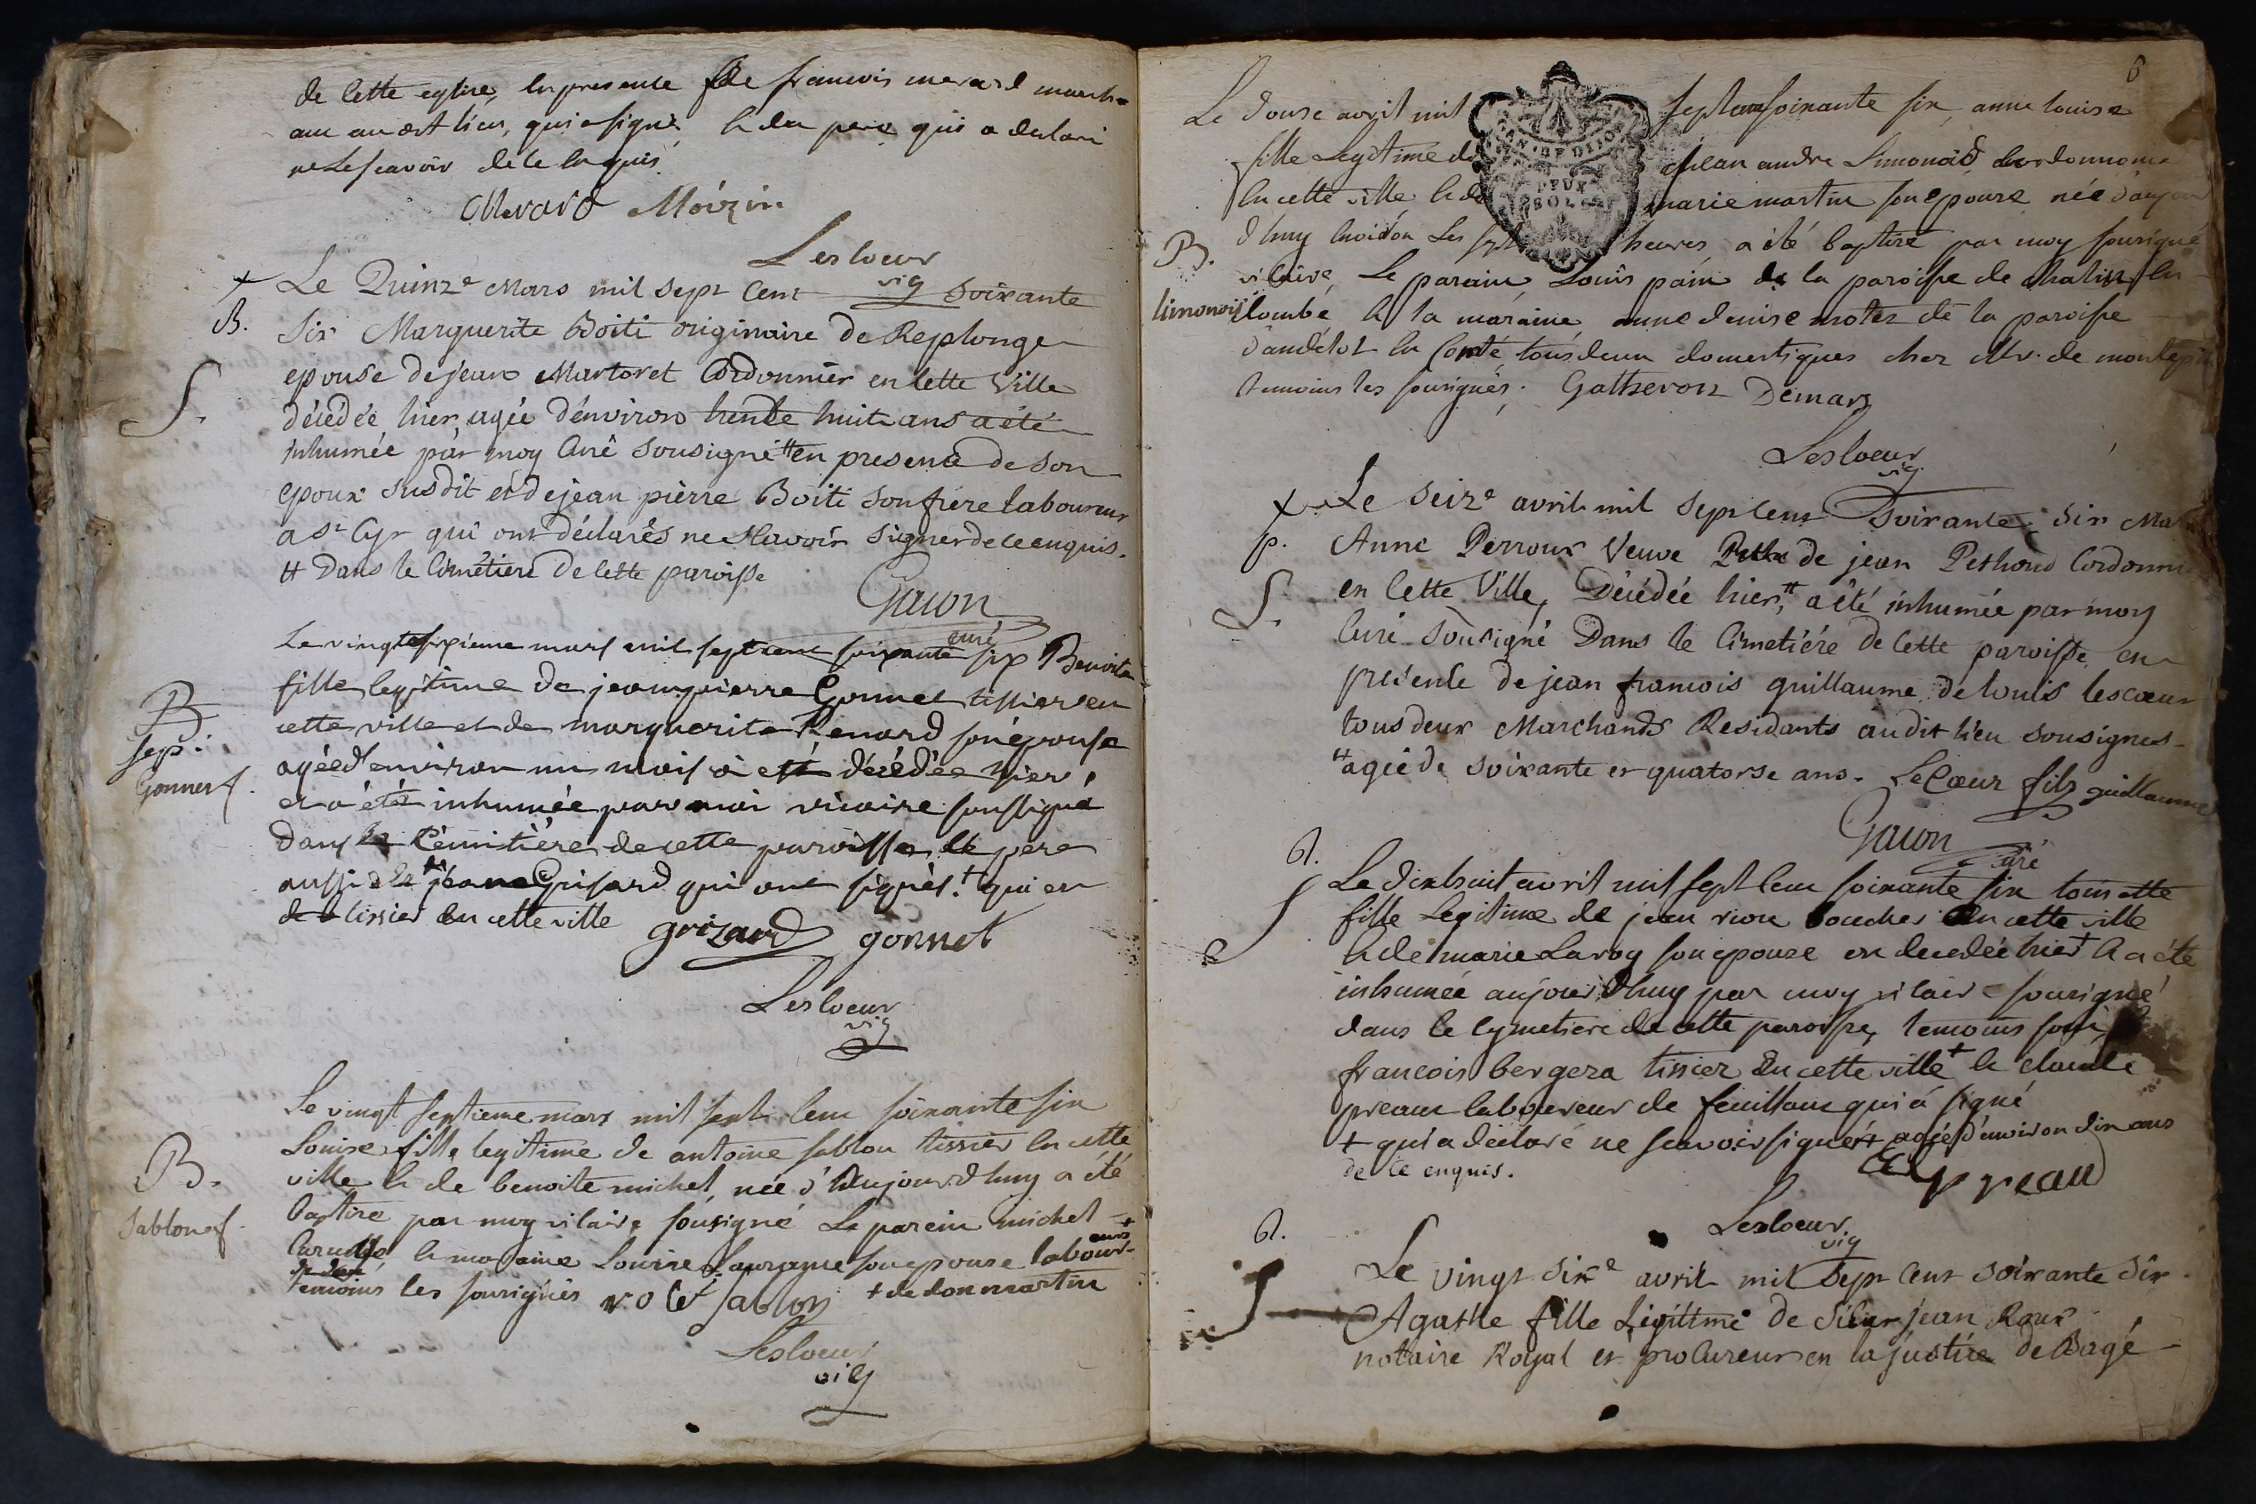 de cette eglise, en presence de francois merard march-
and audit lieu, qui a signé, et du pere qui a declaré
ne le scavoir de ce enquis
Merard Moizin
Lescoeur
vic
+ Le Quinze Mars mil sept Cent soixante
B. Six Marguerite Boiti originaire de Replonge
epouse de jean Martoret Cordonnier en cette Ville
S. décedée hier, agée d'environ trente huit ans a été
inhumée par moy Curé sousigné # en presence de son
epoux susdit et de jean pierre Boiti son frere laboureur
a St Cyr qui ont déclarés ne sçavoir signer de ce enquis.
# Dans le Cimetiere de cette paroisse
Gacon
curé
Le vingt sixieme mars mil sept cent soixante six Benoite
fille legitime de jean pierre Gonnet tissier en
B cette ville et de marguerite Renard son épouse
sep. agée d'environ un mois a été décédée hier,
Gonnet f. et a été inhumée par moi vicaire soussigné
dans le Cémitière de cette paroisse le pere
aussi de jean Grisard qui ont signés. + qui est
tissier en cette ville
grizard gonnet
Lescoeur
vic
Le vingt septieme mars mil sept cent soixante six
Louise fille legitime de antoine sablon tissier en cette
B. ville et de benoite michel, née d'aujourd'huy a été
Sablon f. baptisé par moy vicaire sousigné Le parein michel
et la maraine Louise son epouse laboureurs +
temoins les sousignés rolet sablon + de dommartin
Lescoeur
vic
6
Le douse avril mil sept cent soixante six, anne louise
fille Legitime de jean andre Limonoid cordonnier
en cette ville et de marie martin son epouse née d'aujour
B. d'huy environ Les sept heures a été baptisé par moy sousigné
limonoid vicaire, Le parain Louis pain de la paroisse de chalin en
combe et la maraine anne denise motez de la paroisse
d'andelot en Comté tous deux domestiques chez Mr. de montepin
temoins les sousignés. Gatheron Demars
Lescoeur
vic
+ Le seize avril mil sept cent soixante six Marie
p. Anne Perroux Veuve de jean Pethoud Cordonnier
S. en cette Ville, Décédée hier, # a été inhumée par moy
Curé sousigné Dans le Cimetiére de cette paroisse en
presence de jean francois guillaume de louis lescœur
tous deux Marchands Residants audit lieu sousignés
# agée de soixante et quatorse ans. LeCœur fils guillaume
Gacon
curé
6. Le dixhuit avril mil sept cent soixante six toinette
S fille Legitime de jean rion boucher en cette ville
et de marie Laroy son epouse est decedée hier + et a été
inhumée aujourd'huy par moy vicaire sousigné
dans le cymetiere de cette paroisse, temoins sont
francois bergera tissier en cette ville + et claude
preaux laboureur de feuillans qui a signé
+ qui a déclaré ne scavoir signer + agée d'environ dix ans
de ce enquis.
C preaud
Lescoeur
vic
6.
S Le vingt sixe avril mil sept cent soixante six
Agathe fille Légitime de sieur jean Roux
notaire Royal et procureur en la justice de Bagé